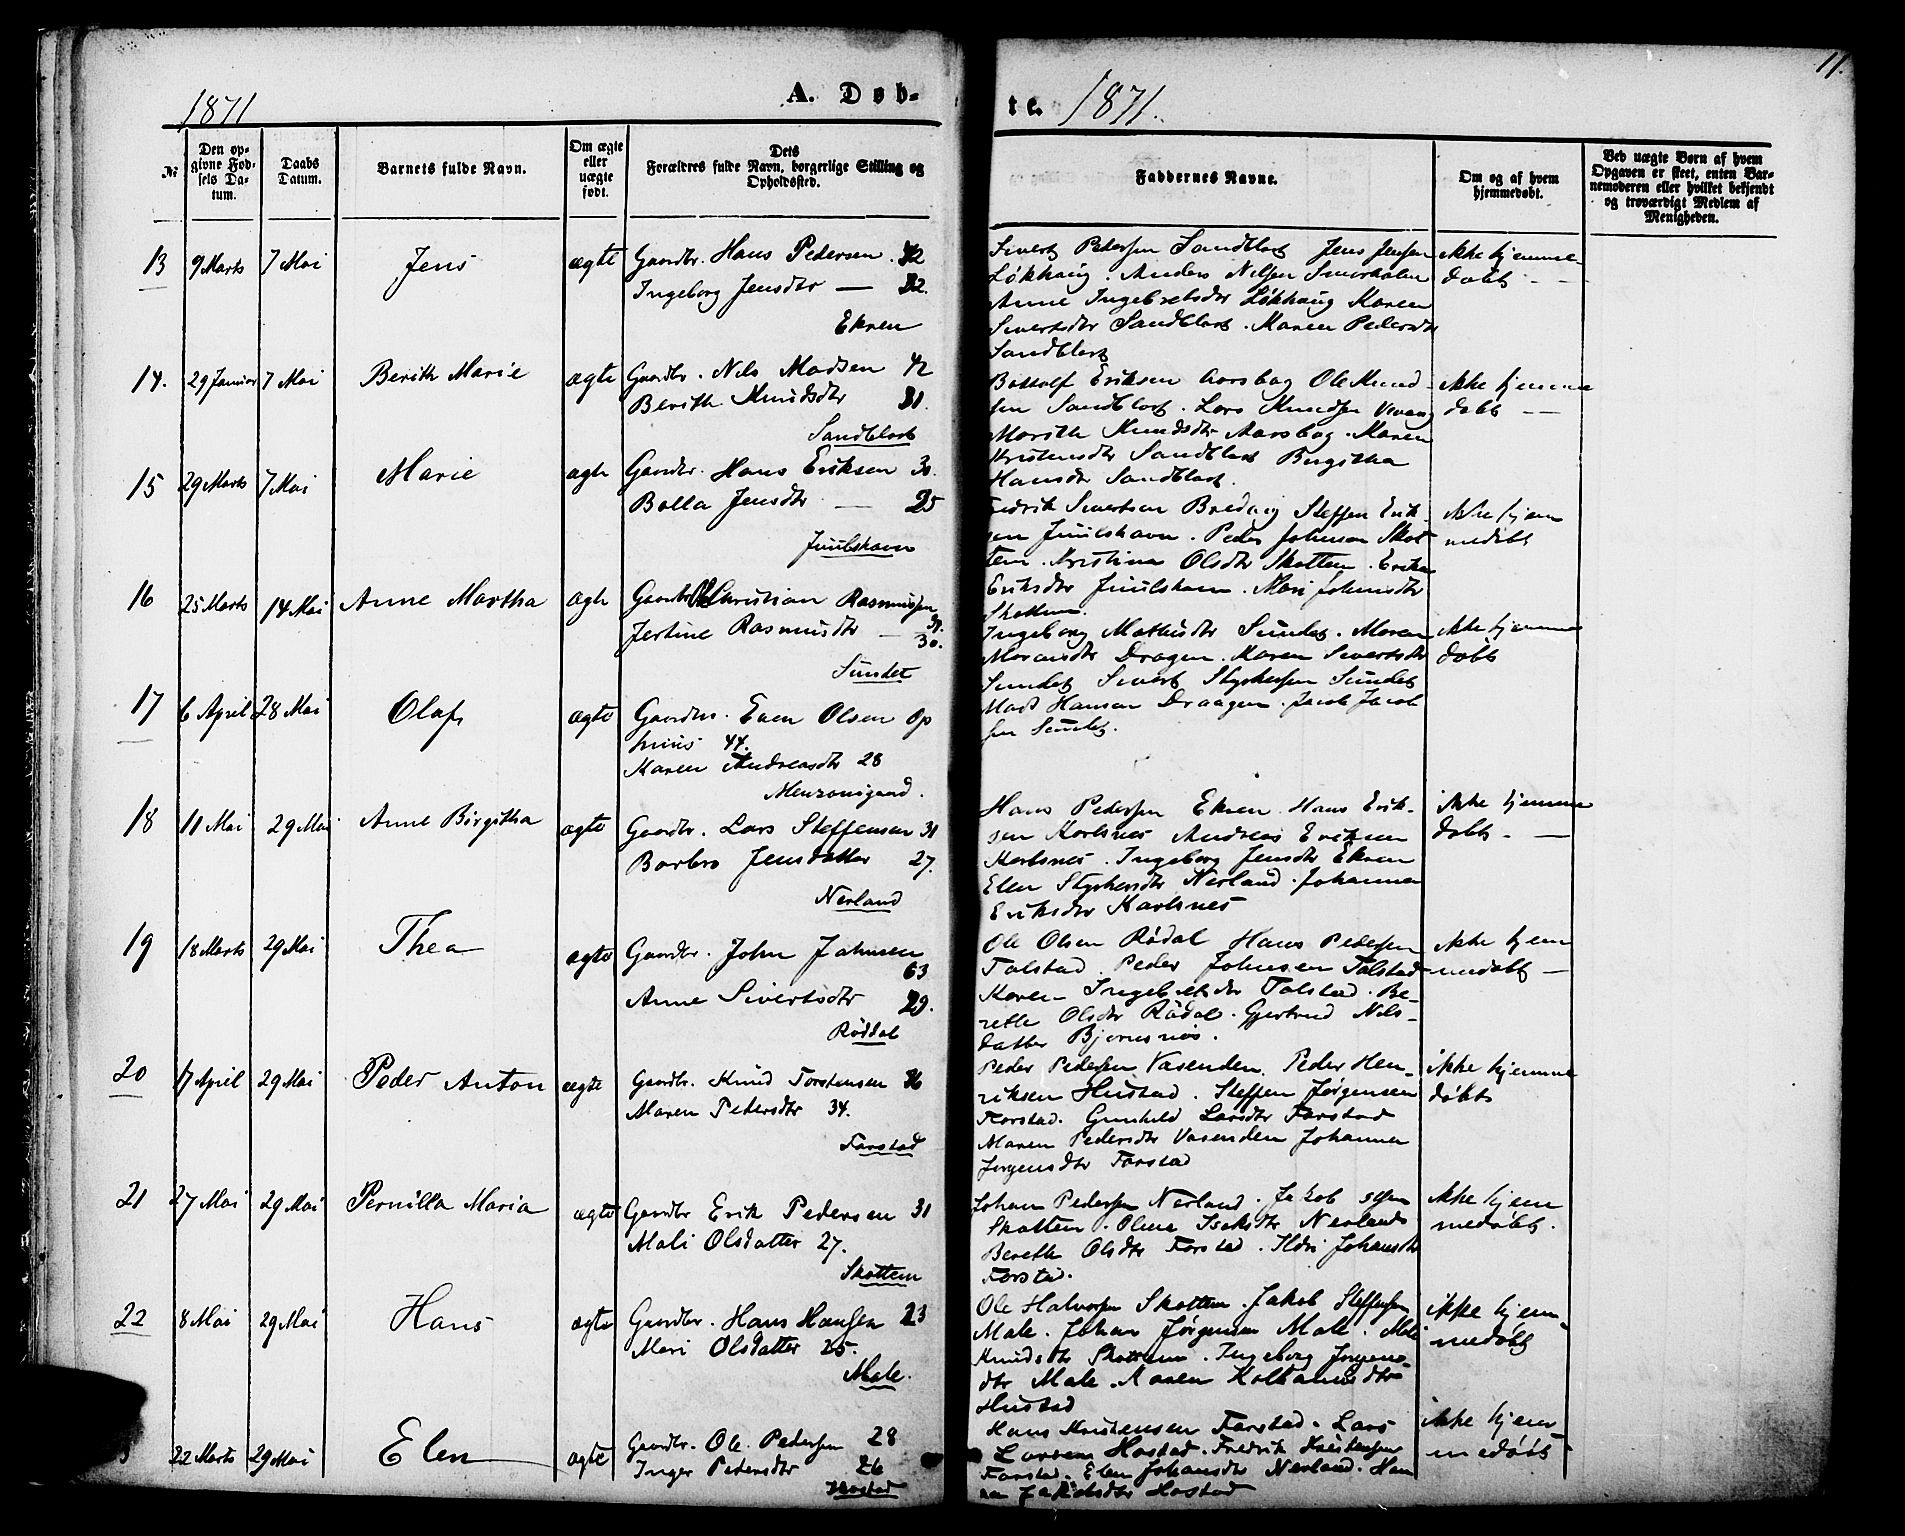 11.
1871
A. Døb-
te. 1871.
№
Den op-
givne Fød-
sels Da-
tum.
Daabs
Datum.
Barnets fulde Navn.
Om ægte
eller
uægte
født.
Dets
Forældres fulde Navn, borgerlige Stilling og
Opholdsted.
Faddernes Navne.
Om og af hvem
hjemmedøbt.
Ved uægte Børn af hvem
Opgaven er skeet, enten Bar-
nemoderen eller hvilket bekjendt
og troværdigt Medlem af
Menigheden.
13 9 Marts 7 Mai Jens ægte Gaardbr. Hans Pedersen 42
Ingeborg Jensdtr — 32.
Ekren
Sivert Pedersen Sandblost Jens Jensen
Løkhaug. Anders Nilsen
Anne Ingebretsdtr Løkhaug Karen
Sivertsdtr Sandblost. Maren Pedersdtr
Sandblost
ikke hjemme-
døbt - —
14. 29 Januar 7 Mai Berith Marie ægte Gaardbr. Nils Madsen 42
Berith Knudsdtr 31.
Sandblost
Bottolf Eriksen Aarsbog Ole Knud-
sen Sandblost. Lars Knudsen
Marith Knudsdtr Aarsbog. Karen
Kristensdtr Sandblost Birgitha
Hansdtr Sandblost.
ikke hjemme
døbt —
15 29 Marts 7 Mai Marie ægte Gaardbr. Hans Eriksen 30.
Bolla Jensdtr — 25
Juulshavn
Fredrik Sivertsen Bredvig Steffen Erik-
sen Juulshavn. Peder Johnsen Skot-
tem. Kristine Olsdtr Skottem. Erika
Eriksdtr Juulshavn. Mari Johnsdtr
Skottem.
ikke hjem
medøbt
16 25 Marts 14 Mai Anne Martha ægte Gaardbr. Christian Rasmussen
Jertine Rasmusdtr — 30.
Sundet
Ingeborg Mathisdtr Sundet. Maren
Monsdtr Dragen. Karen Sivertsdtr
Sundet Sivert Styrkersen Sundet
Mads Hansen Draagen. Jacob Jacob
sen Sundet.
ikke hjemme
døbt
17 6 April 28 Mai Olaf ægte Gaardbr. Even Olsen Op
huus 44.
Karen Andreasdtr 28
18 11 Mai 29 Mai Anne Birgitha ægte Gaardbr. Lars Steffensen 31
Barbro Jensdatter 27.
Nerland
Hans Pedersen Ekren. Hans Erik-
sen Karlsnes Andreas Eriksen
Karlsnes. Ingeborg Jensdtr Ekren
Elen Styrkersdtr Nerland. Johanna
Eriksdtr Karlsnes
ikke hjemme
døbt - —
19 18 Marts 29 Mai Thea ægte Gaardbr. John Johnsen
63
Anne Sivertsdtr 29.
Røddal
Ole Olsen Rødal Hans Pedersen
Tolstad. Peder Johnsen Tolstad
Karen Ingebretsdtr Tolstad. Be-
rethe Olsdtr Rødal. Gjertrud Nils-
datter Bjørnsnøs.
ikke hjem
medøbt —
20 17 April 29 Mai Peder Anton ægte Gaardbr. Knud Torstensen 36
Maren Pedersdtr 34.
Farstad
Peder Pedersen Vasenden. Peder Hen-
riksen Hustad. Steffen Jørgensen
Farstad. Gunhild Larsdtr Farstad
Maren Pedersdtr Vasenden Johanna
Jørgensdtr Farstad
ikke hjemme
døbt
21 27 Mai 29 Mai Pernilla Maria ægte Gaardbr Erik Pedersen 31
Mali Olsdatter 27.
Skottem
Johan Pedersen Nerland. Jakob
Skottem. Olina Isaksdtr Nerland
Berethe Olsdtr Farstad. Ildri Johansdtr
Farstad.
ikke hjem
medøbt.
22 8 Mai 29 Mai Hans ægte Gaardbr. Hans Hansen 23
Mari Olsdatter 25.
Male.
Ole Halvorsen Skottem. Jakob Steffensen
Male. Johan Jørgensen Male. Mali
Knudsdtr Skottem. Ingeborg Jørgens-
dtr Male. Maren Kolbansdtr
Hustad
ikke hjem-
medøbt
3 22 Marts 29 Mai Elen ægte Gaardbr. Ole Pedersen 28
Inger Pedersdtr 26
Hostad
Hans Kristensen Farstad. Lars
Larsen Hostad. Fredrik Kristensen
Farstad. Elen Johansdtr Nerland. Han
na Jakobsdtr Hostad
ikke hjem
medøbt